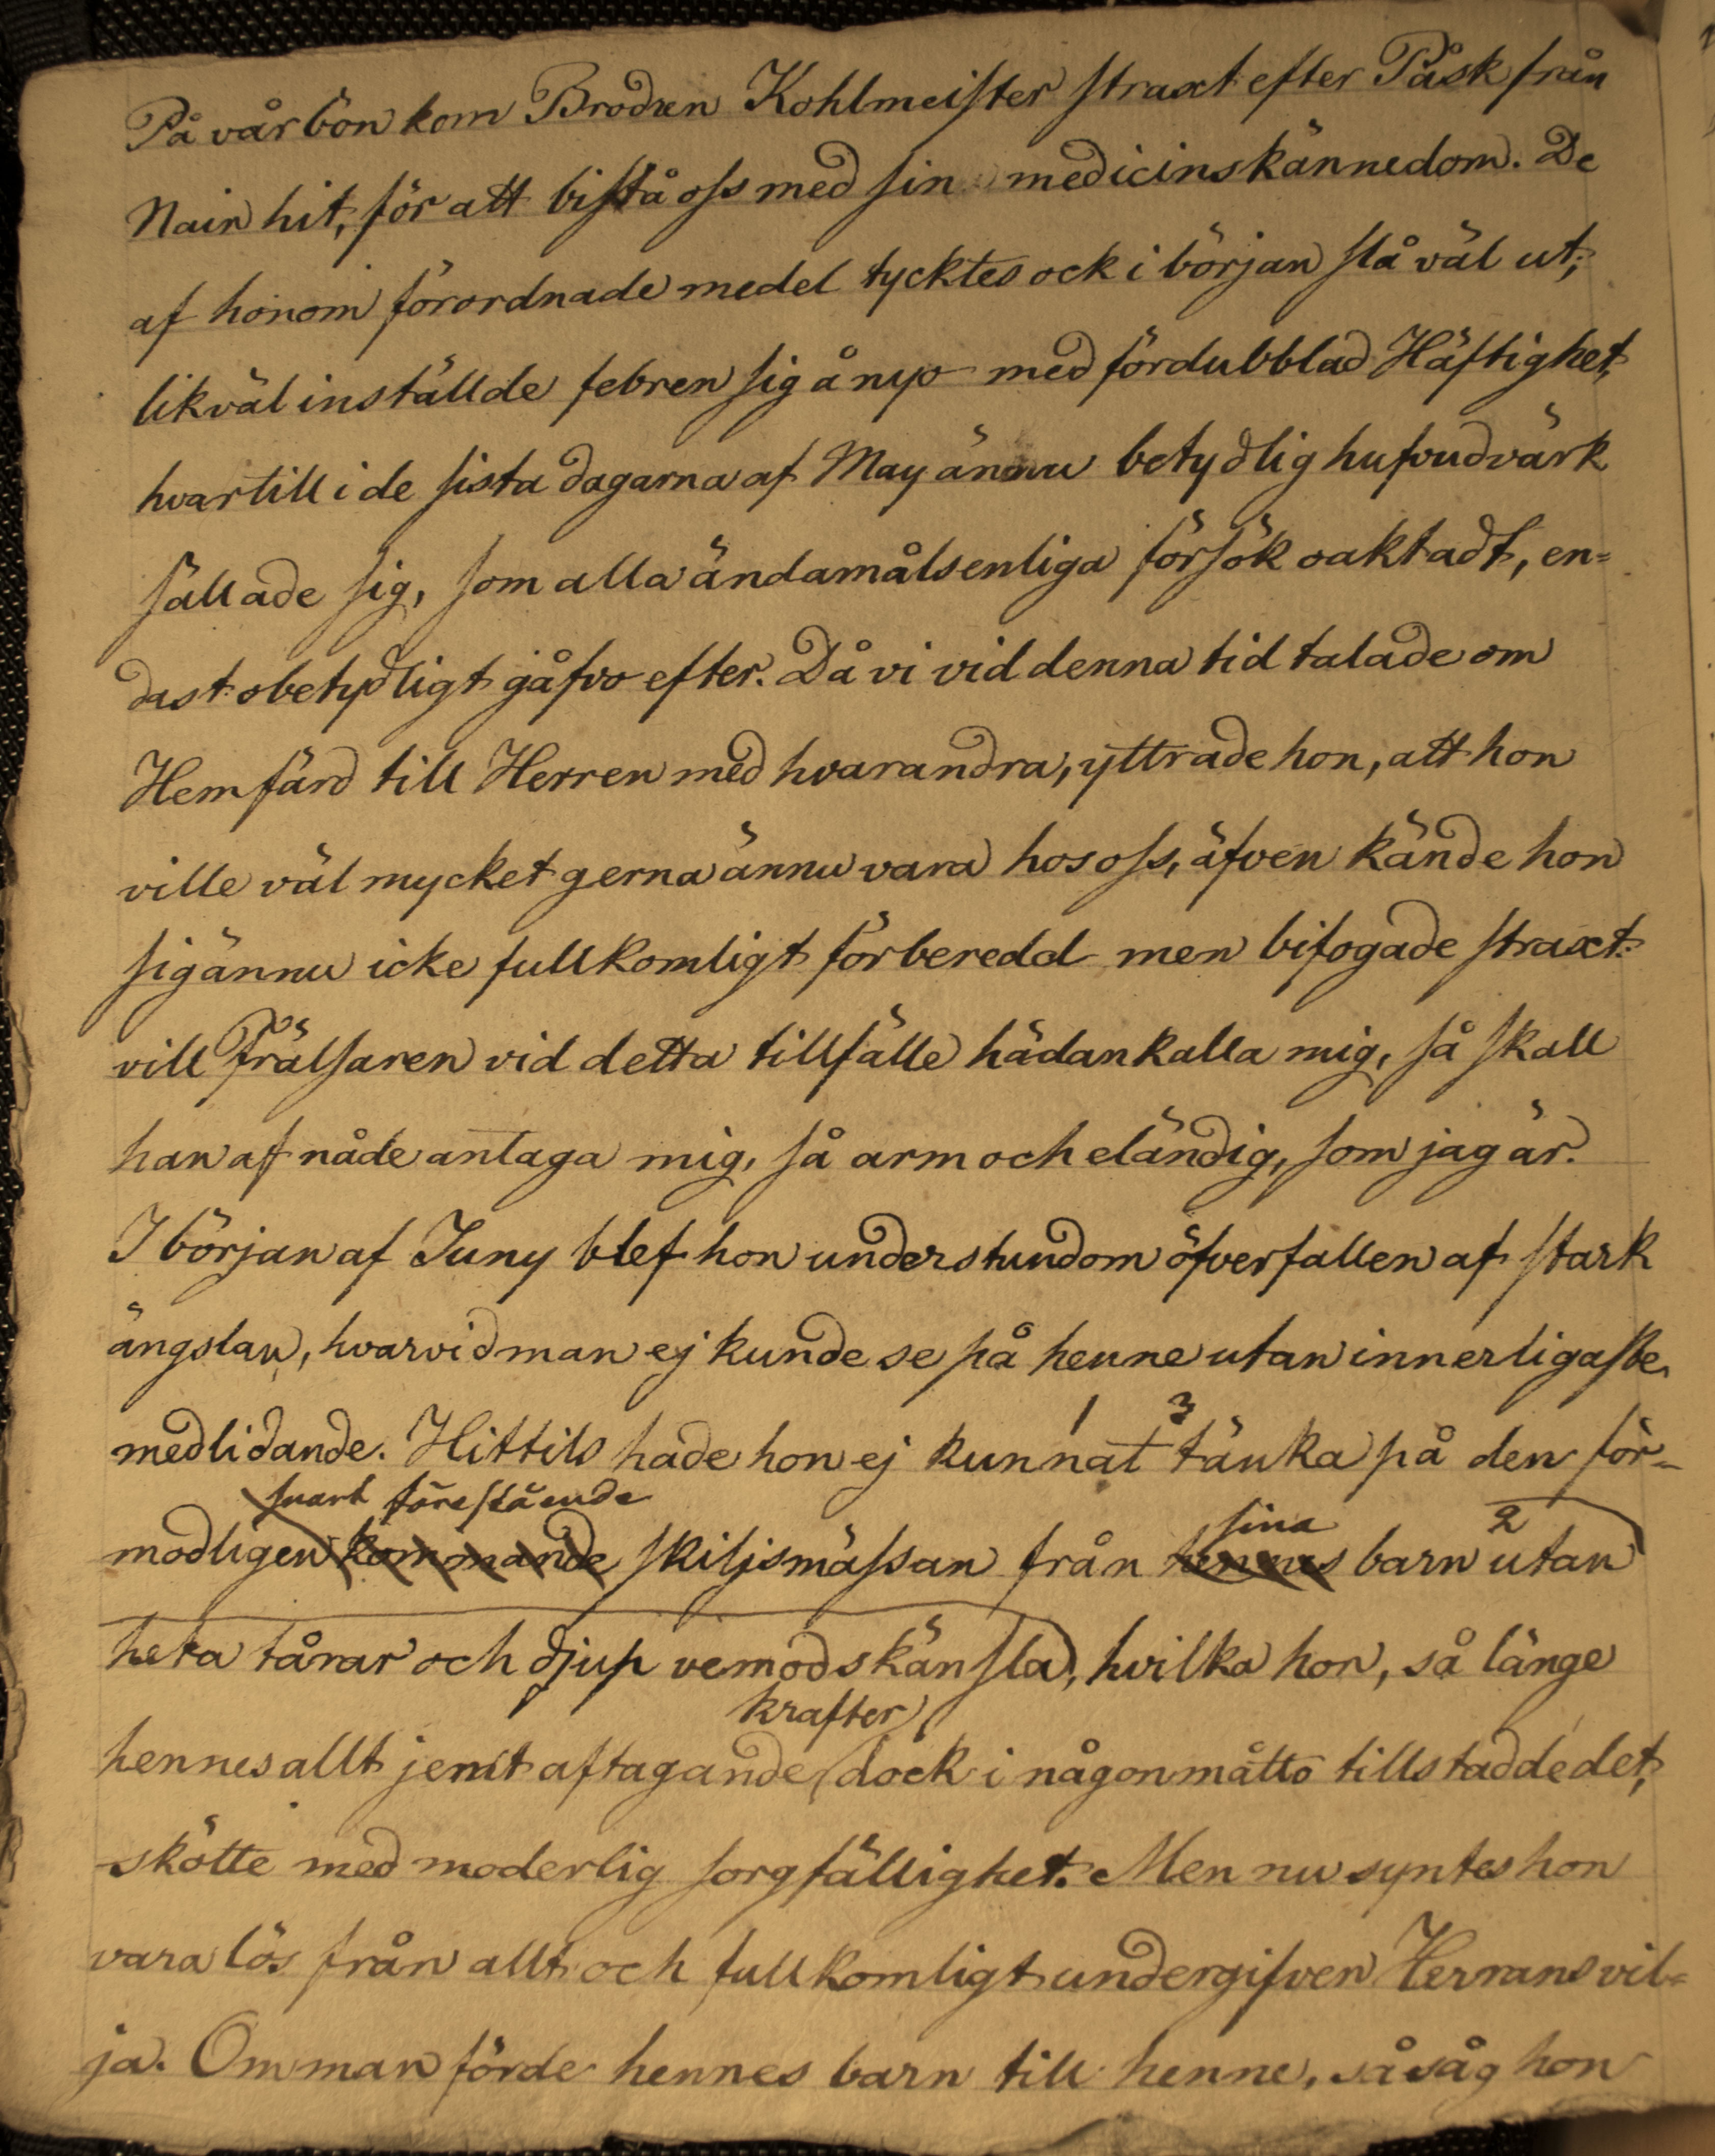 På vår bön kom Brodren Kohlmeister straxt efter Påsk från
Nain hit, för att bistå oss med sin medicinskännedom. De
af honom förordnade medel tycktes ock i början slå väl ut;
likväl inställde febren sig å nyo med fördubblad Häftighet,
hvartill i de sista dagarna af May ännu betydlig hufvudvärk
sällade sig, som alla ändamålsenliga försök oaktadt, en=
dast obetydligt gåfvo efter. Då vi vid denna tid talade om
Hemfärd till Herren med hvarandra, yttrade hon, att hon
ville väl mycket gerna ännu vara hos oss, äfven kände hon
sig ännu icke fullkomligt förberedd men bifogade straxt:
vill Frälsaren vid detta tillfälle hädankalla mig, så skall
han af nåde antaga mig, så arm och eländig, som jag är.
I början af Juny blef hon understundom öfverfallen af stark
ängslan, hvarvid man ej kunde se på henne utan innerligaste
1 3
medlidande. Hittils hade hon ej kunnat tänka på den för=
snart förestående sina 2
modligen kommande skiljsmässan från hennes barn utan
heta tårar och djup vemodskänsla, hvilka hon, så länge
krafter
hennes allt jemt aftagande dock i någon måtto tillstadde det,
skötte med moderlig sorgfällighet. Men nu syntes hon
vara lös från allt och fullkomligt undergifven Herrans vil=
ja. Om man förde hennes barn till henne, så såg hon